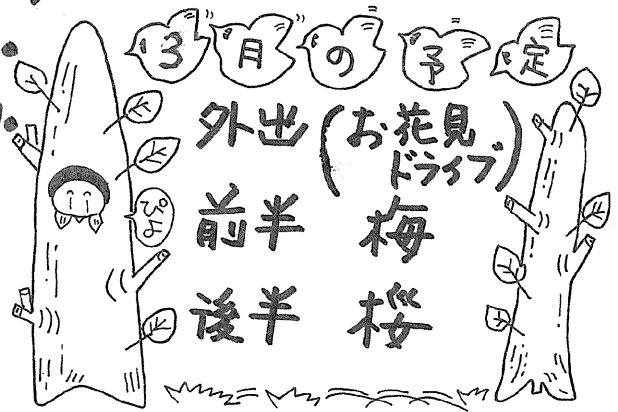 3月の予定
外出(お花見
ドライブ)
ぴよ
前半 梅
後半 桜